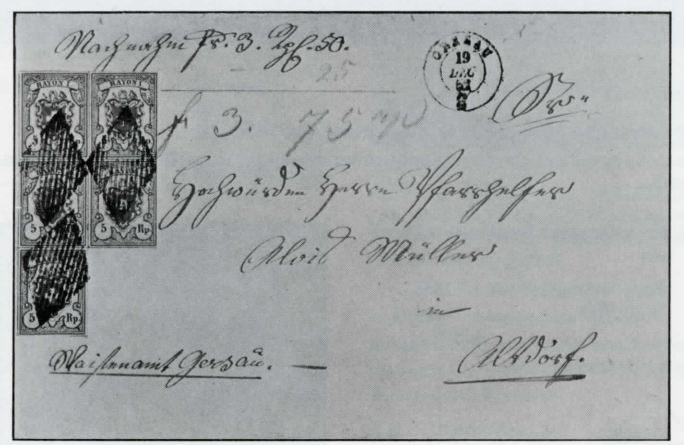 Nachnahm fr. 3. Rp. 50.
25
f 3. 75
GERSAU
19
DEC
Sr
RAYON I
RAYON I
Hochwürden Herrn Pfarrhelfer
5 Rp.
5 Rp.
Alois Müller
in
5 Rp.
Waisenamt Gersau. —
Altdorf.